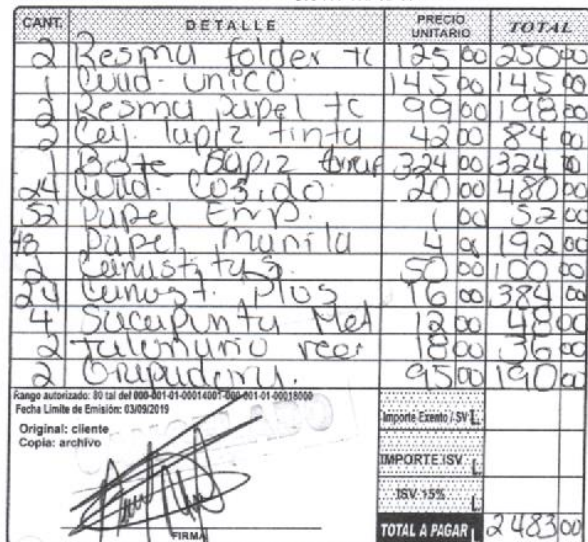 CANT. DETALLE PRECIO UNITARIO TOTAL
2 Resma folder tc 125 00 250 00
1 Cuad. unico. 145 00 145 00
2 Resma papel tc 99 00 198 00
2 Caj. lapiz tinta 42 00 84 00
1 Bote lapiz 324 00 324 00
24 Cuad. Cosido 20 00 480 00
52 Papel Emp. 1 00 52 00
48 Papel Manila 4 00 192 00
2 Canastitas 50 00 100 00
24 Canast. Plus 16 00 384 00
4 Sacapunta Met 12 00 48 00
2 Talonario reci 18 00 36 00
2 Grapadora. 95 00 190 00
Rango autorizado: 80 tal del 000-001-01-00014001-000-001-01-00018000
Fecha Limite de Emisión: 03/09/2019
Original: cliente
Copia: archivo
Importe Exento / SV L.
IMPORTE ISV L.
ISV 15% L.
FIRMA
TOTAL A PAGAR L 2483 00